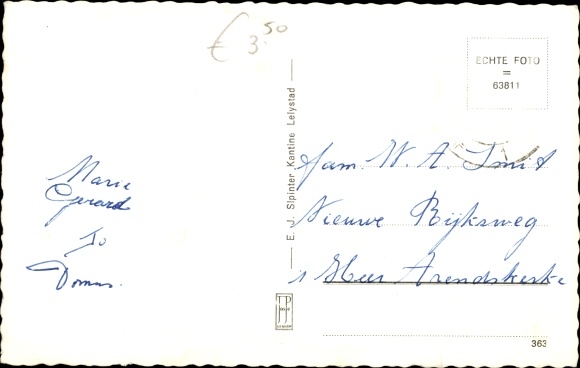 € 3.50
ECHTE FOTO
=
63811
E. J. Slpinter Kantine Lelystad
Marie
Gerard
Jo
Domus.
fam. W. A. Smit
Nieuwe Rijksweg
s Heer Arendskerke
JP
363